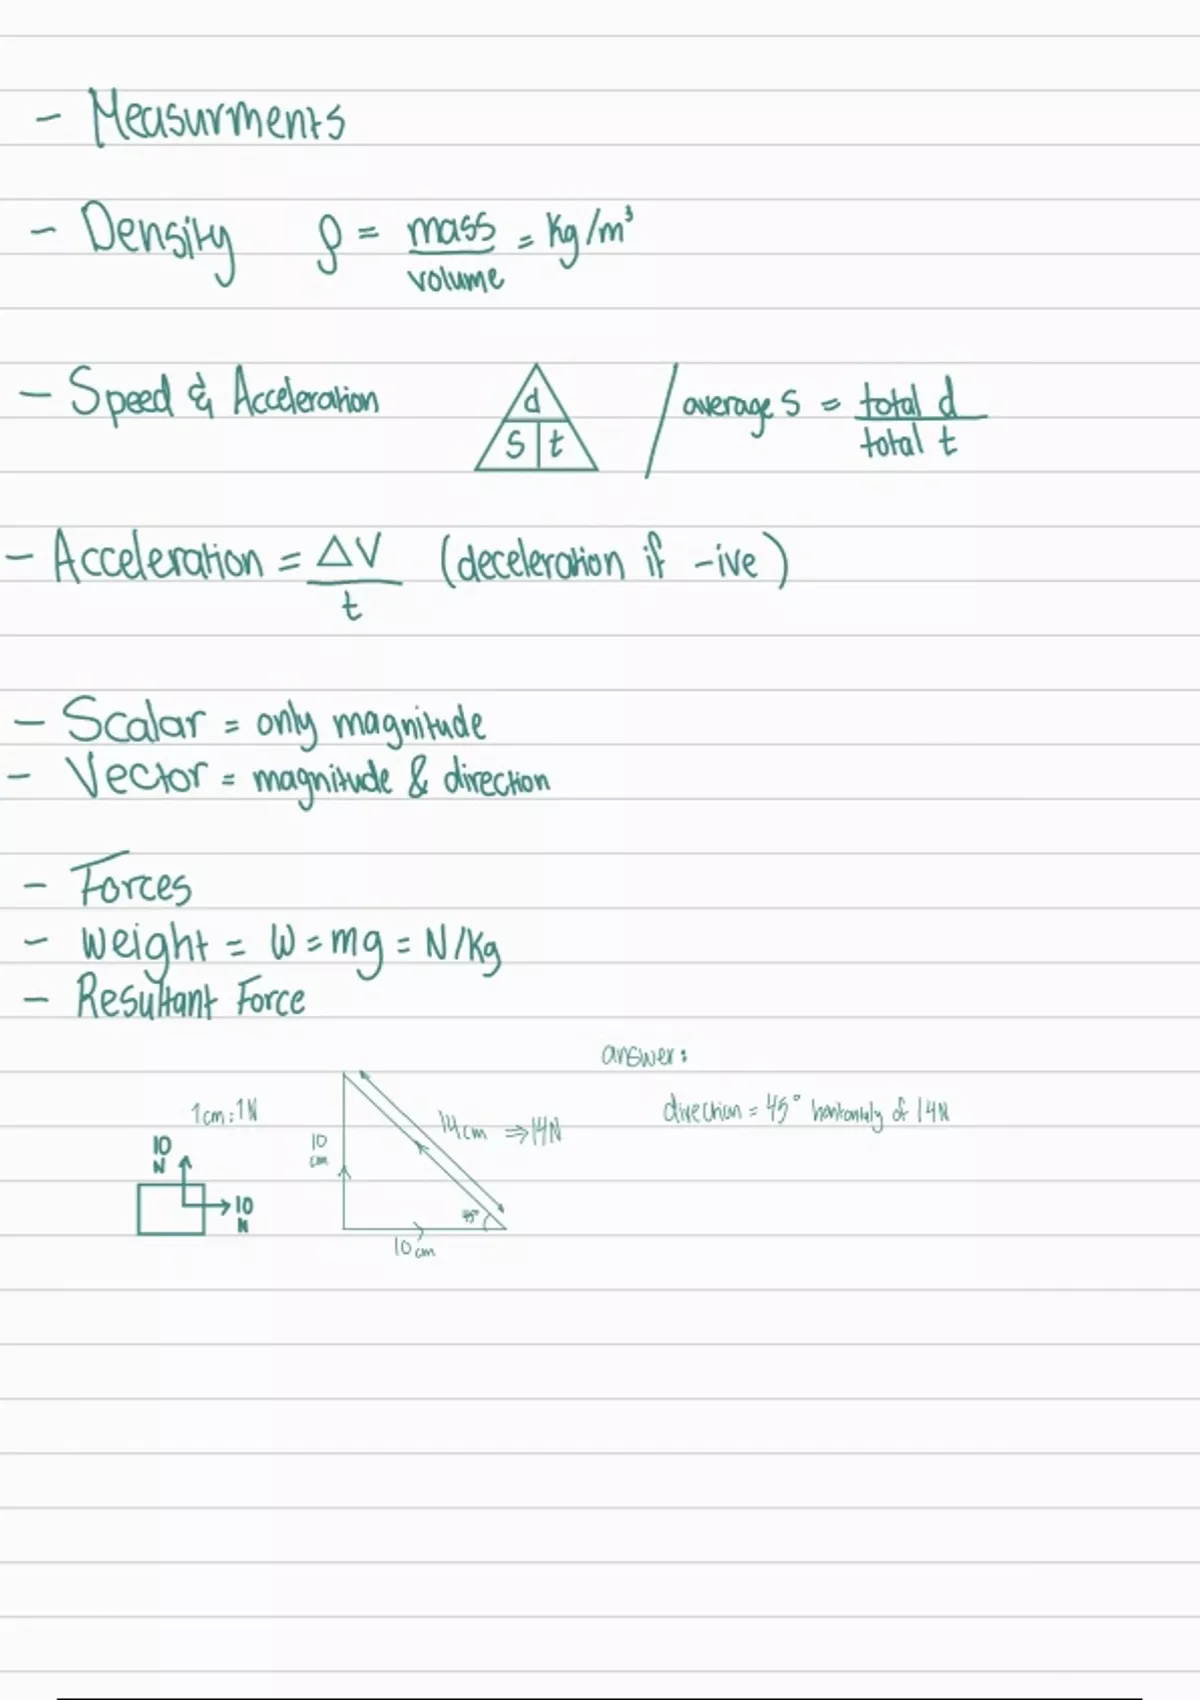 - Measurments
- Density ρ = mass/volume = Kg/m³
- Speed & Acceleration d s t / average s = total d/total t
- Acceleration = ΔV/t (deceleration if -ive)
- Scalar = only magnitude
- Vector = magnitude & direction
- Forces
- Weight = W = mg = N/Kg
- Resultant Force
answer:
1cm:1N
direction = 45° of 14N
14cm ⇒ 14N
10 N
10 cm
10 N
45°
10 cm